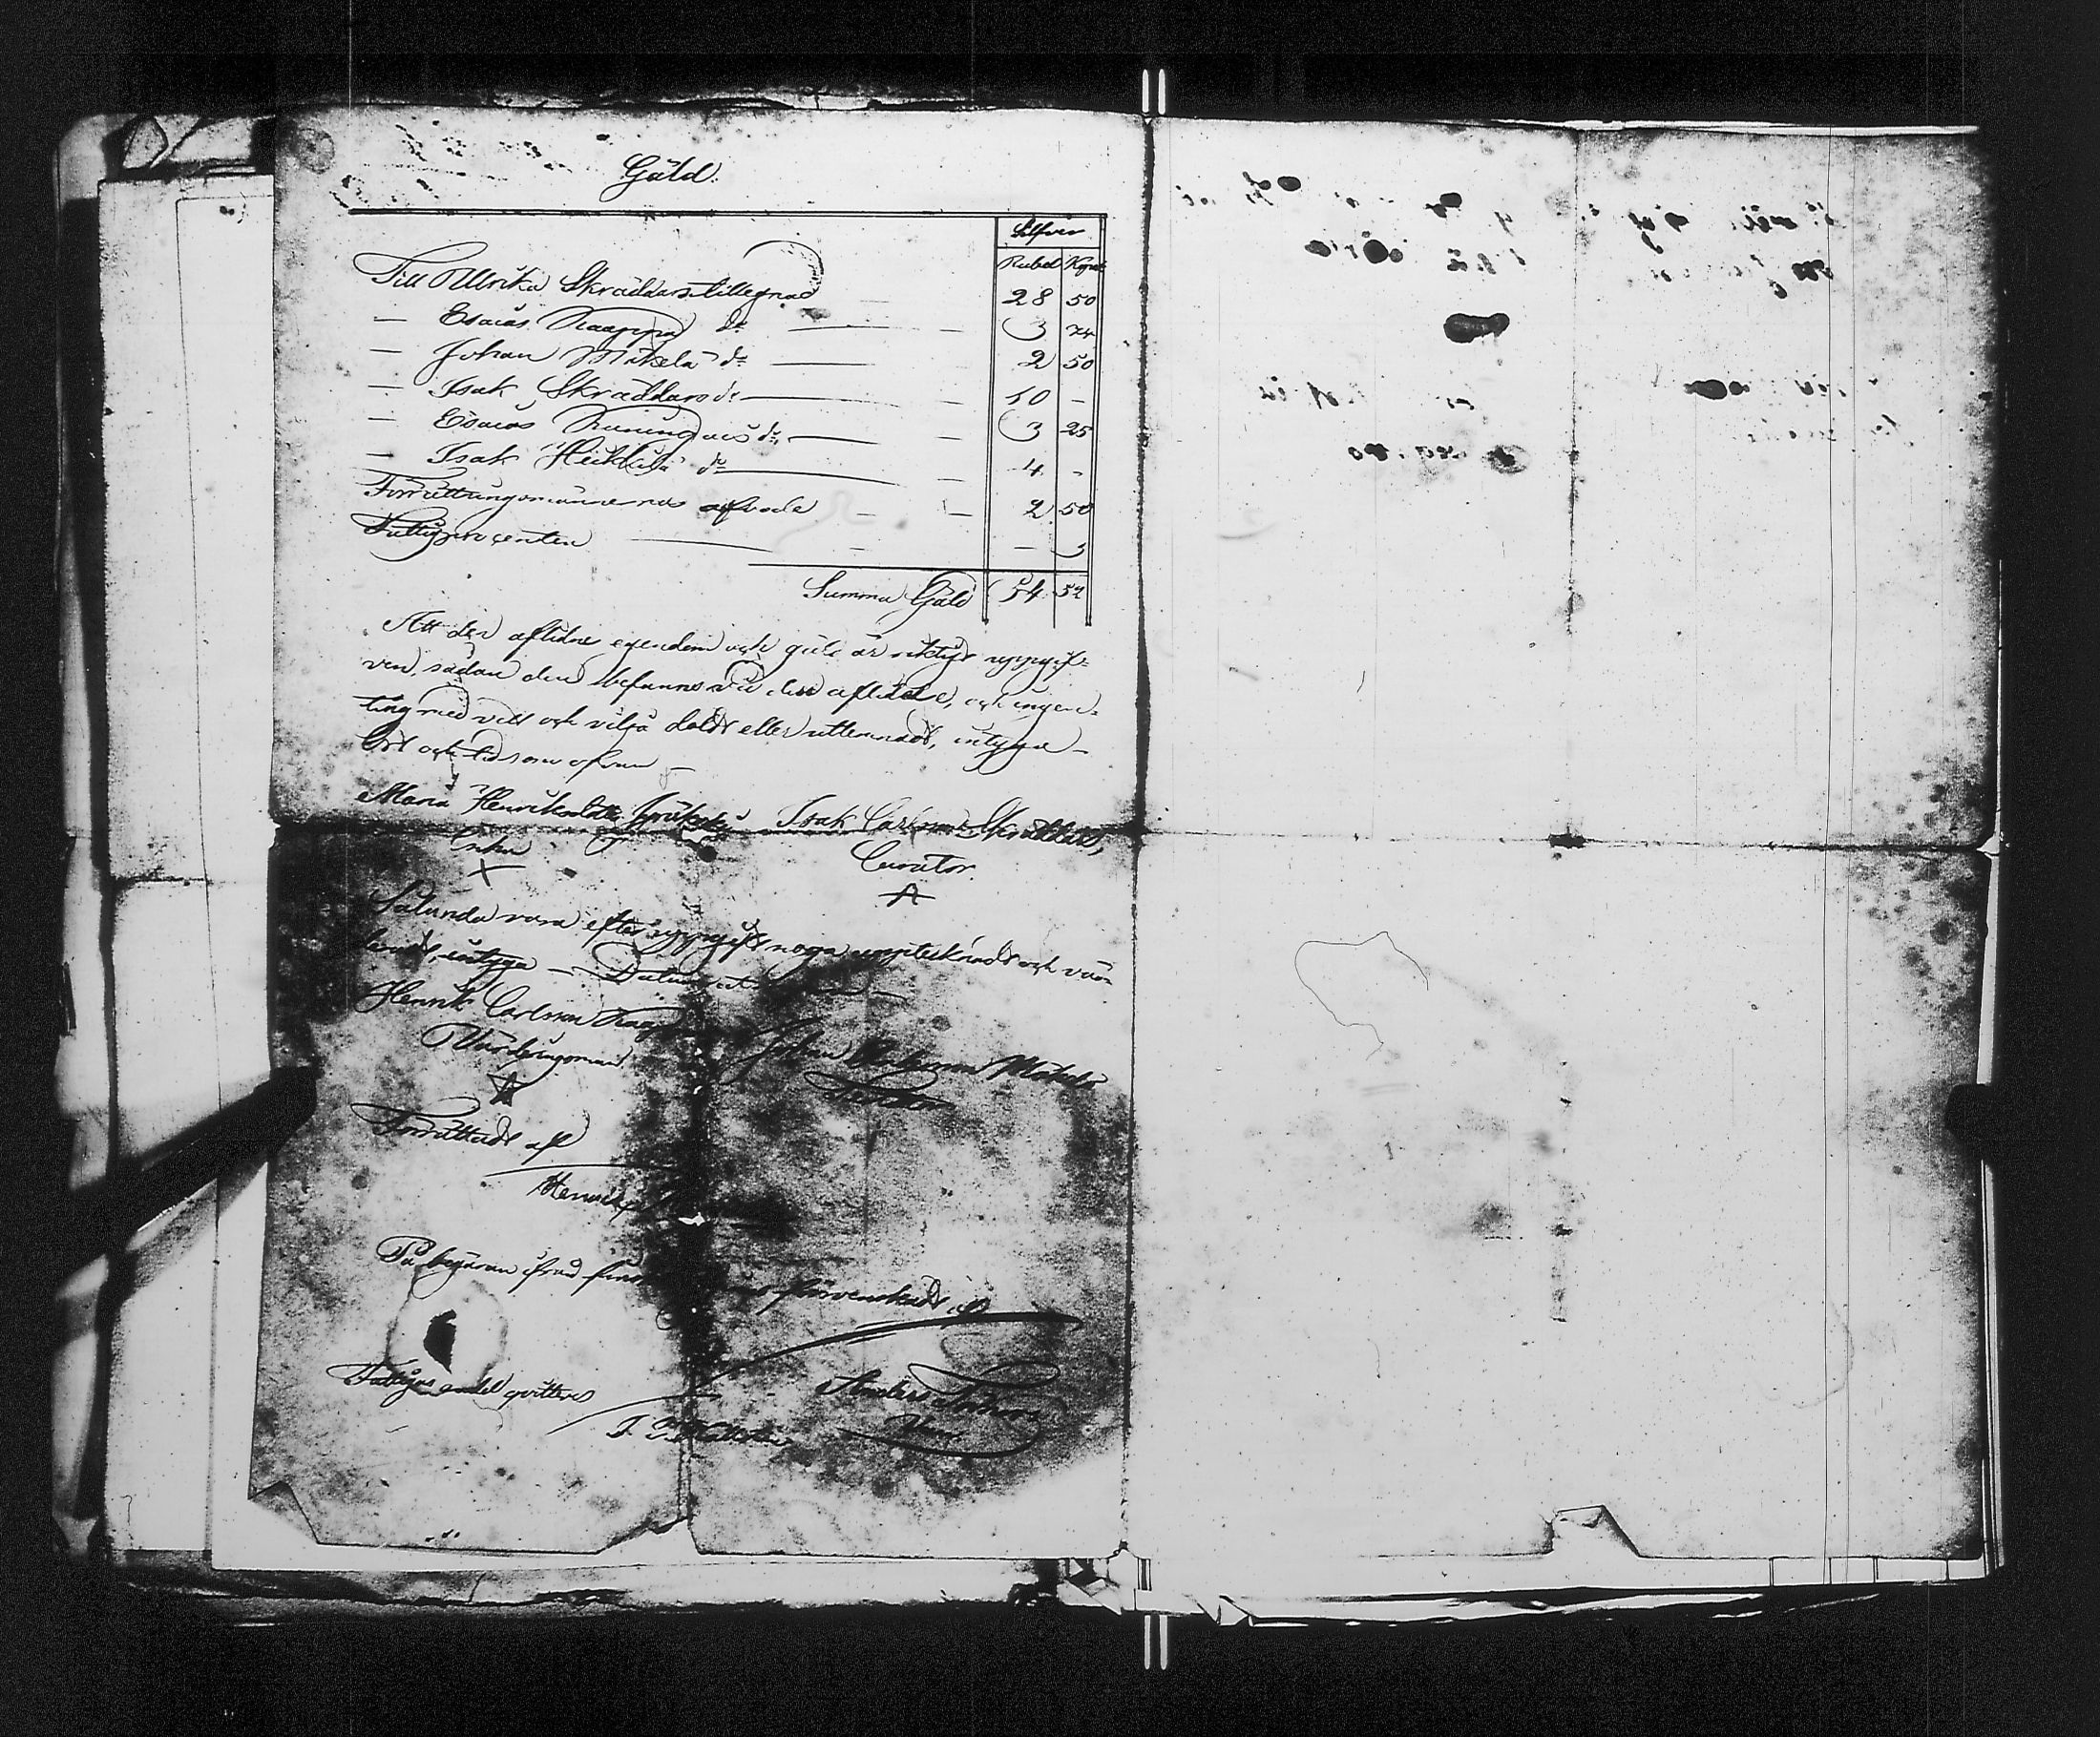 Gäld.
Silfver
Rubel Kopek
Till Ullrika Skräddars tillegnad — 28 50
— Esaias Kaappa do — 3 74
— Johan Mäkelä do — 2 50
— Isak Skräddars do — 10 -
— Esaias Kuningas do — 3 25
— Isak Heikkilä do — 4 -
Förrättningsmännernas arfvode — 2 50
Fattigprocenten — — 3
Summa Gäld 54 52
Att den aflidnes egendom och gäld är riktigt uppgif-
ven, sådan den befanns vid den aflidne, och ingen-
ting med vett och vilja doldt eller utlemnadt, intyga —
Ort och tid som ofvan —
Maria Henriksdotter Isak Carlsson Skräddars,
Enka Curator.
X
Sålunda vara efter uppgift noga upptecknadt och vär-
deradt, intyga — Datum ut
Henrik Carlsson Johan Mäkelä
Värderingsman
Förrättadt af
Henrik
På begäran ifrån finskan försvenskadt af
Fattigas andel qvitteras Anders